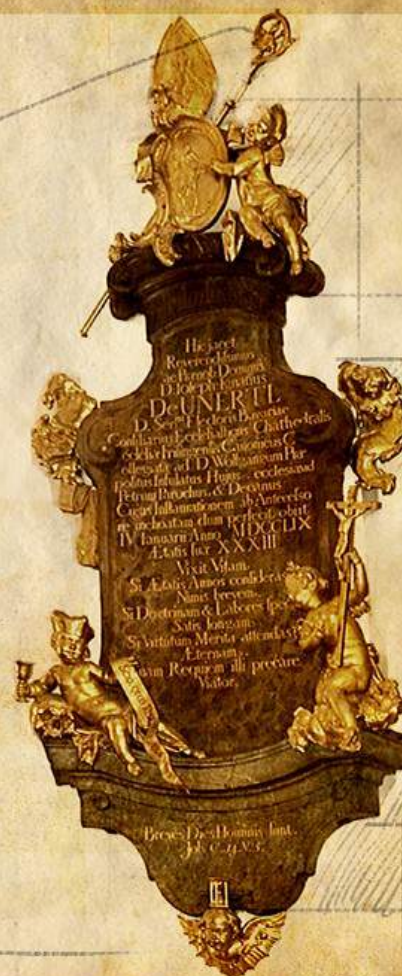 Hic jacet
Reverendissimus
ac Prænob Dominus
D. Joseph
De UNERTL
D. Seren Electoris Bavariae
Consiliarius Ecclesiasticus Cathedralis
Ecclesiæ Frisingensis Canonicus
ad D. Wolfgangum
Infulatus Hujus ecclesiæ ad
Petrum Parochus & Decanus
Cujus Instaurationem ab Antecesso
re inchoatam dum Perfecit obiit
IV Januarii Anno MDCCLIX
Ætatis suæ XXXIII
Vixit Vitam.
Si Ætatis Annos consideras
Nimis brevem.
Si Doctrinam & Labores spec
Satis longam.
Si Virtutum Merita attendas
Æternam.
Requiem illi precare
Viator.
Breves Dies Hominis sunt.
Job C. 14. V. 5.